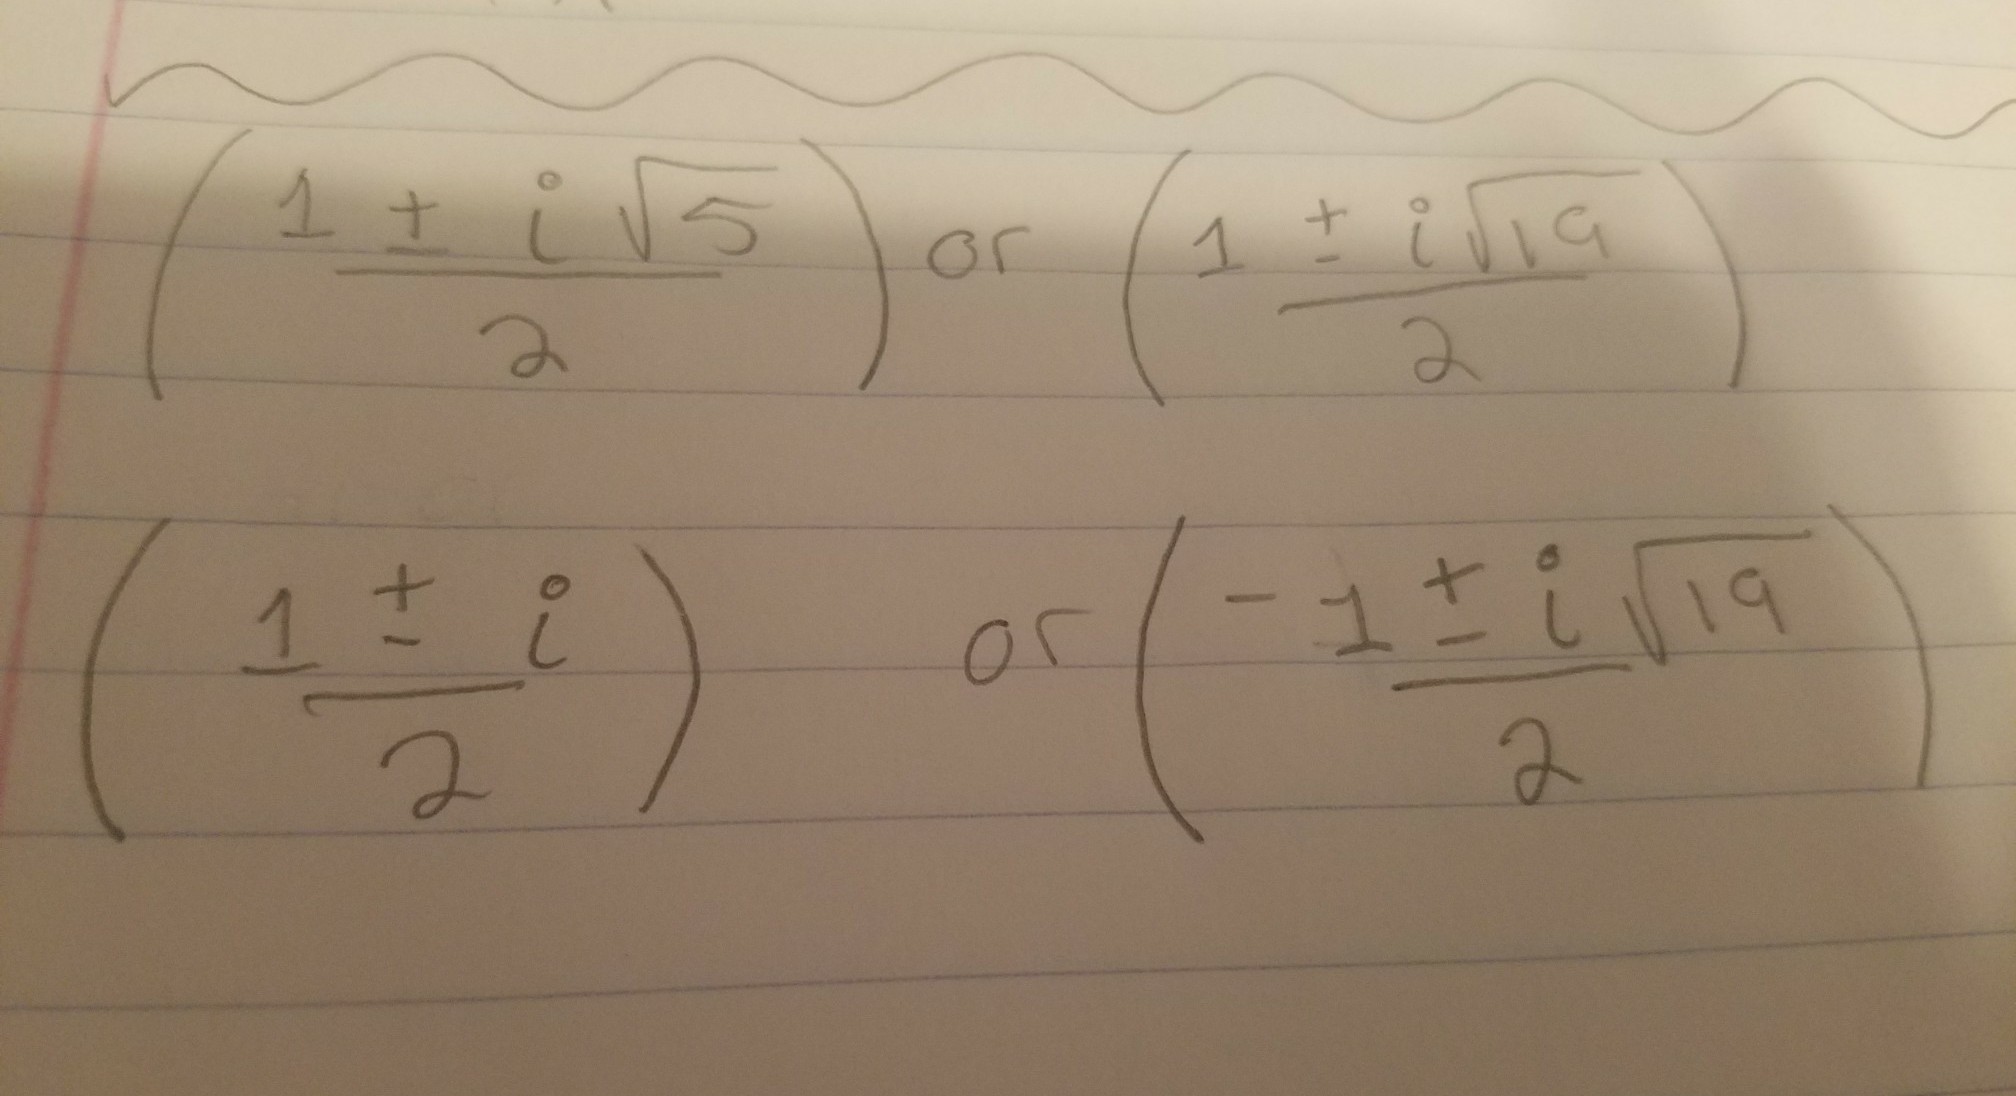 (1 ± i√5 / 2) or (1 ± i√19 / 2)
(1 ± i / 2) or (-1 ± i√19 / 2)